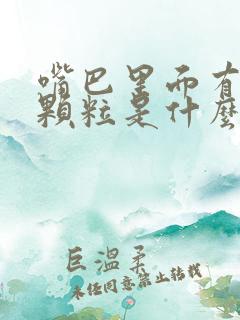 嘴巴里面有
顆粒是什麼
巨溫柔
未经同意禁止转载